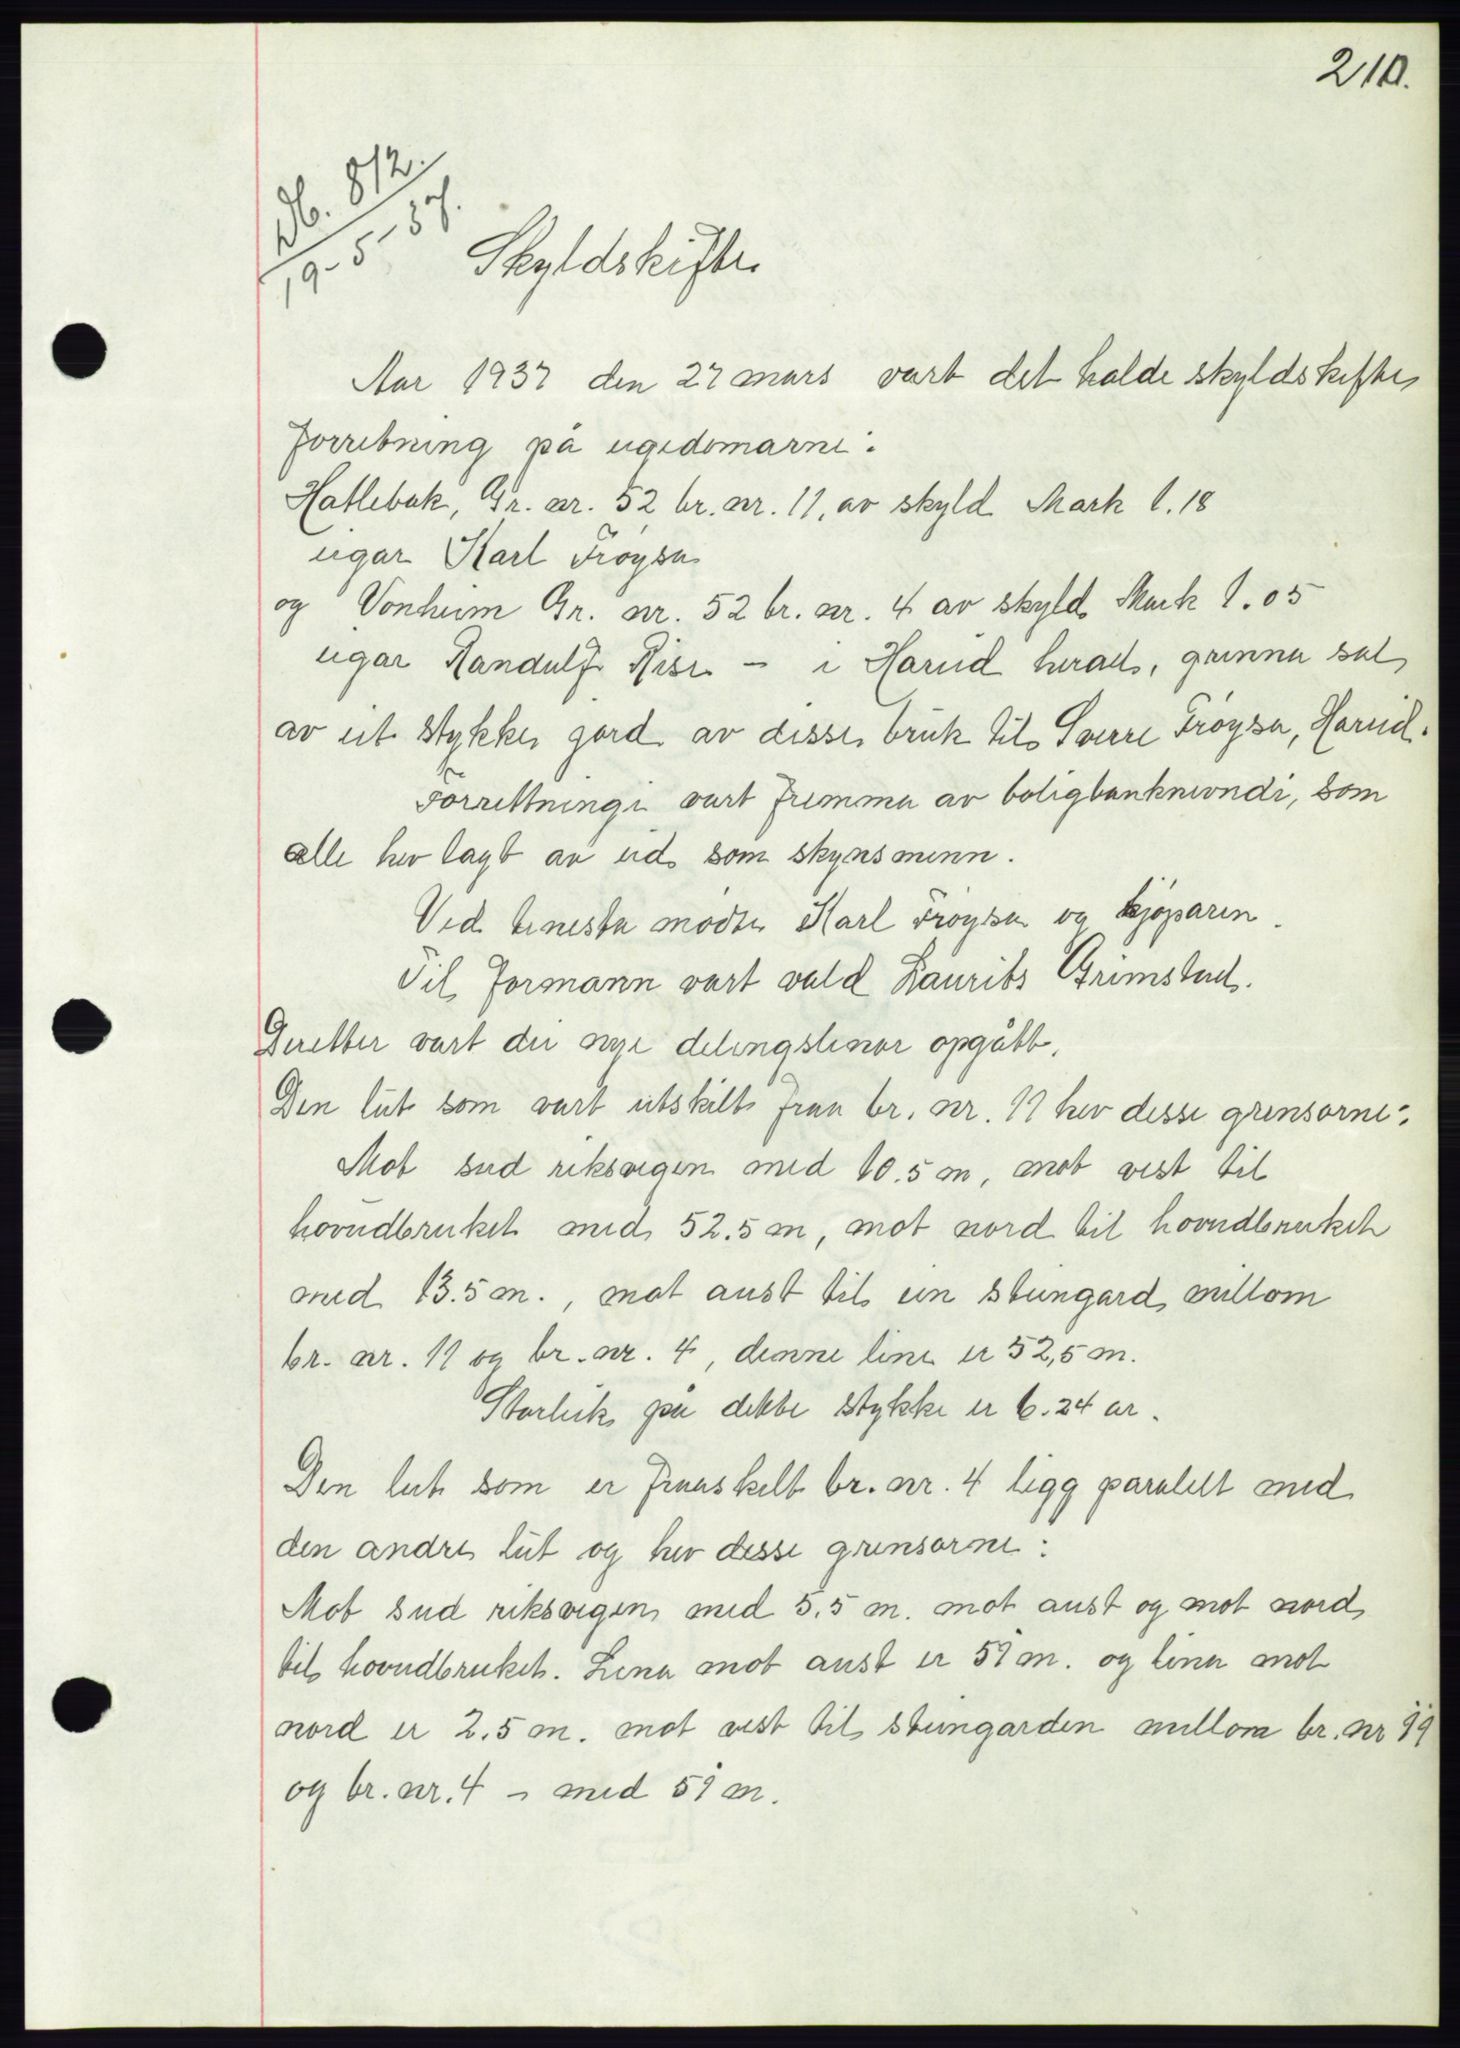 210.
Db. 812.
19-5-37.
Skyldskifte
Aar 1937 den 27 mars vart det halde skyldskifte
forretning på eigedomarne:
Hatlebak, Gr. nr. 52 br. nr. 11, av skyld Mark 1.18
eigar Karl Frøysa
og Vonheim Gr. nr. 52 br. nr. 4 av skyld Mark 1.05
eigar Randulf Rise – i Hareid herad, grunna sal
av eit stykke jord av disse bruk til Sverre Frøysa, Hareid.
Forrettningi vart fremma av boligbanknevndi, som
alle hev lagt av eid som skynsmenn.
Ved tenesta mødte Karl Frøysa og kjøparen.
Til formann vart vald Laurits Grimstad.
Deretter vart dei nye delingslinor opgått.
Den lut som vart utskilt fraa br. nr. 11 hev desse grensorne:
Mot sud riksvegen med 10.5 m, mot vest til
hovudbruket med 52.5 m, mot nord til hovudbruket
med 13.5 m., mot aust til ein steingard millom
br. nr. 11 og br. nr. 4, denne line er 52,5 m.
Storleik på dette stykke er 6.24 ar.
Den lut som er fraaskilt br. nr. 4 ligg paralelt med
den andre lut og hev desse grensorne:
Mot sud riksvegen med 5.5 m. mot aust og mot nord
til hovudbruket. Lina mot aust er 51 m. og lina mot
nord er 2.5 m. mot vest til steingarden millom br. nr 11
og br. nr. 4 – med 51 m.